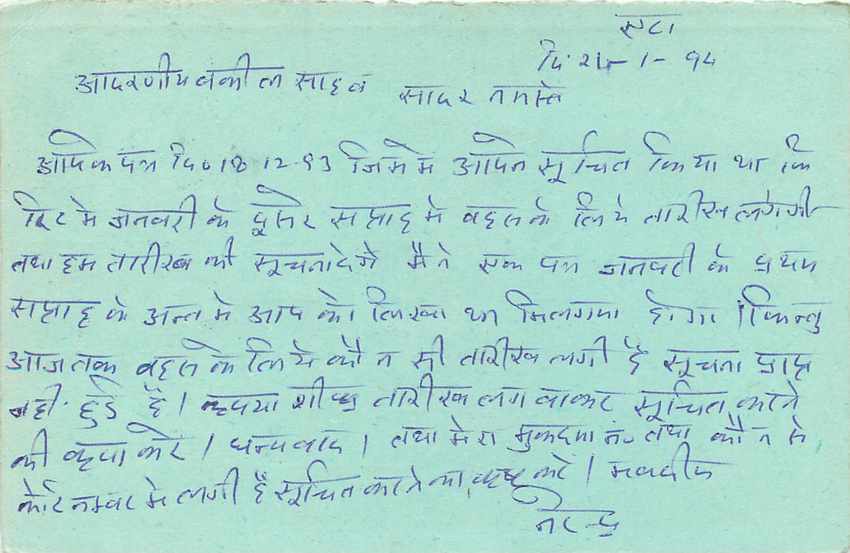 एटा
दि. 21-1-94
आदरणीय वकील साहब
सादर नमस्ते
आपके पत्र दि० 18-12-93 जिसमें में आपने सूचित किया था कि
रिट में जनवरी के दूसरे सप्ताह में बहस के लिये तारीख लगेगी
तथा हम तारीख की सूचना देंगे मैंने एक पत्र जनवरी के प्रथम
सप्ताह के अन्त में आप को लिखा था मिलगया होगा। किन्तु
आजतक बहस के लिये कौन सी तारीख लगी है सूचना प्राप्त
नही हुई है। कृपया शीघ्र तारीख लगवाकर सूचित करने
की कृपा करें। धन्यवाद। तथा मेरा मुकदमा नं० तथा कौन से
कोर्ट नम्बर में लगी है सूचित करने का कष्ट करें। भवदीय